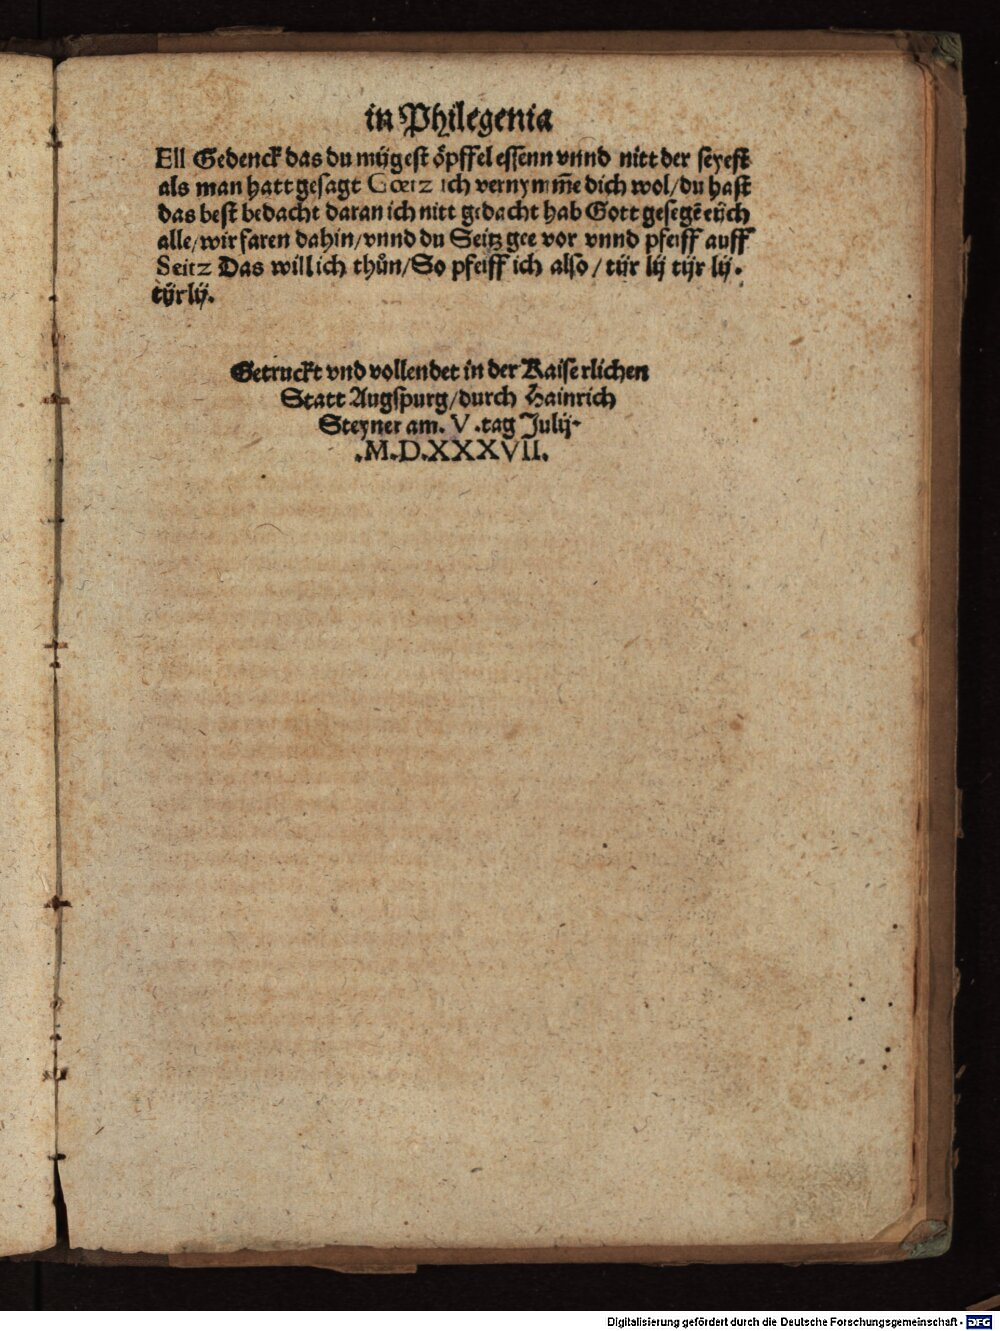 in Philegenia
Ell Gedenck das du mügest öpffel essenn vnnd nitt der seyest
als man hatt gesagt Goetz ich vernymm̃e dich wol/du hast
das best bedacht daran ich nitt gedacht hab Gott gesegẽ eüch
alle/wir faren dahin/vnnd du Seitz gee vor vnnd pfeiff auff
Seitz Das will ich thůn/So pfeiff ich also/tÿr lÿ tÿr lÿ.
tÿrlÿ.
Getruckt vnd vollendet in der Kaiserlichen
Statt Augspurg/durch Hainrich
Steyner am. V .tag Julij.
.M.D.XXXVII.
Digitalisierung gefördert durch die Deutsche Forschungsgemeinschaft - DFG